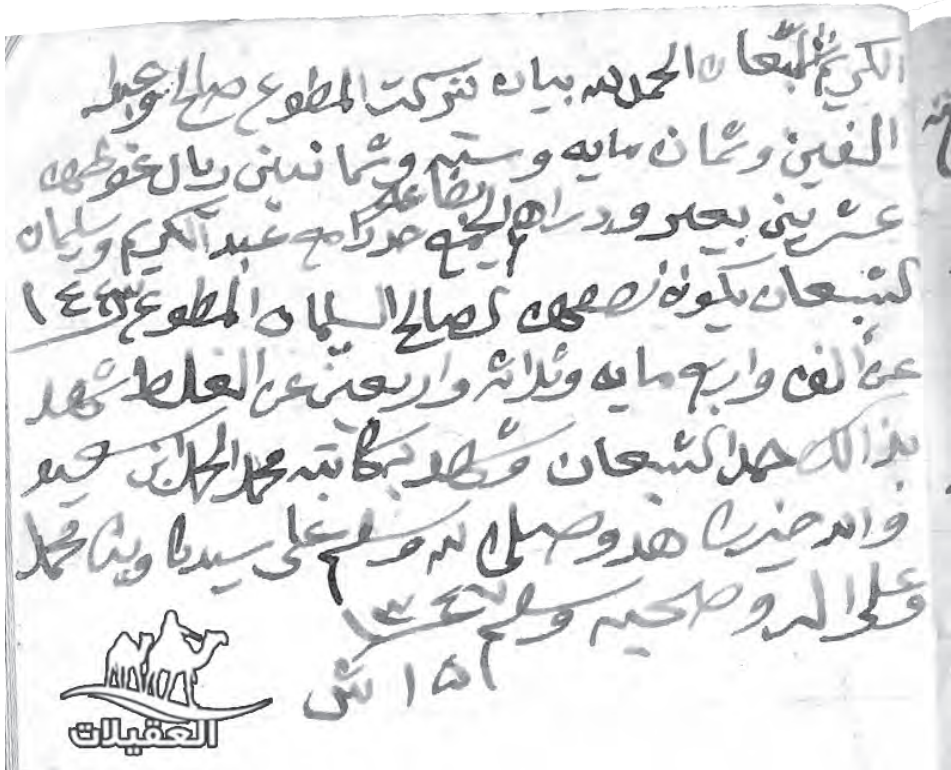 الكريم الشعان الحمد لله بيان تركت المطوع صالح وعبد
الفين وثمان مايه وسته وثمانين ريال
عشرين بعير ودراهم البضاعه الجميع حدرا مع عبد الكريم وسليمان
الشعان يكون نصفهن لصالح السليمان المطوع ١٤٤٣
عن ألف واربع مايه وثلاثه واربعين عن الغلط شهد
بذالك حمد الشعان وشهد به كاتبه محمد الحمد ابن سعيد
وصلى الله وسلم على سيدنا ونبينا محمد
وعلى اله وصحبه وسلم
١٥ ش
العقيلات